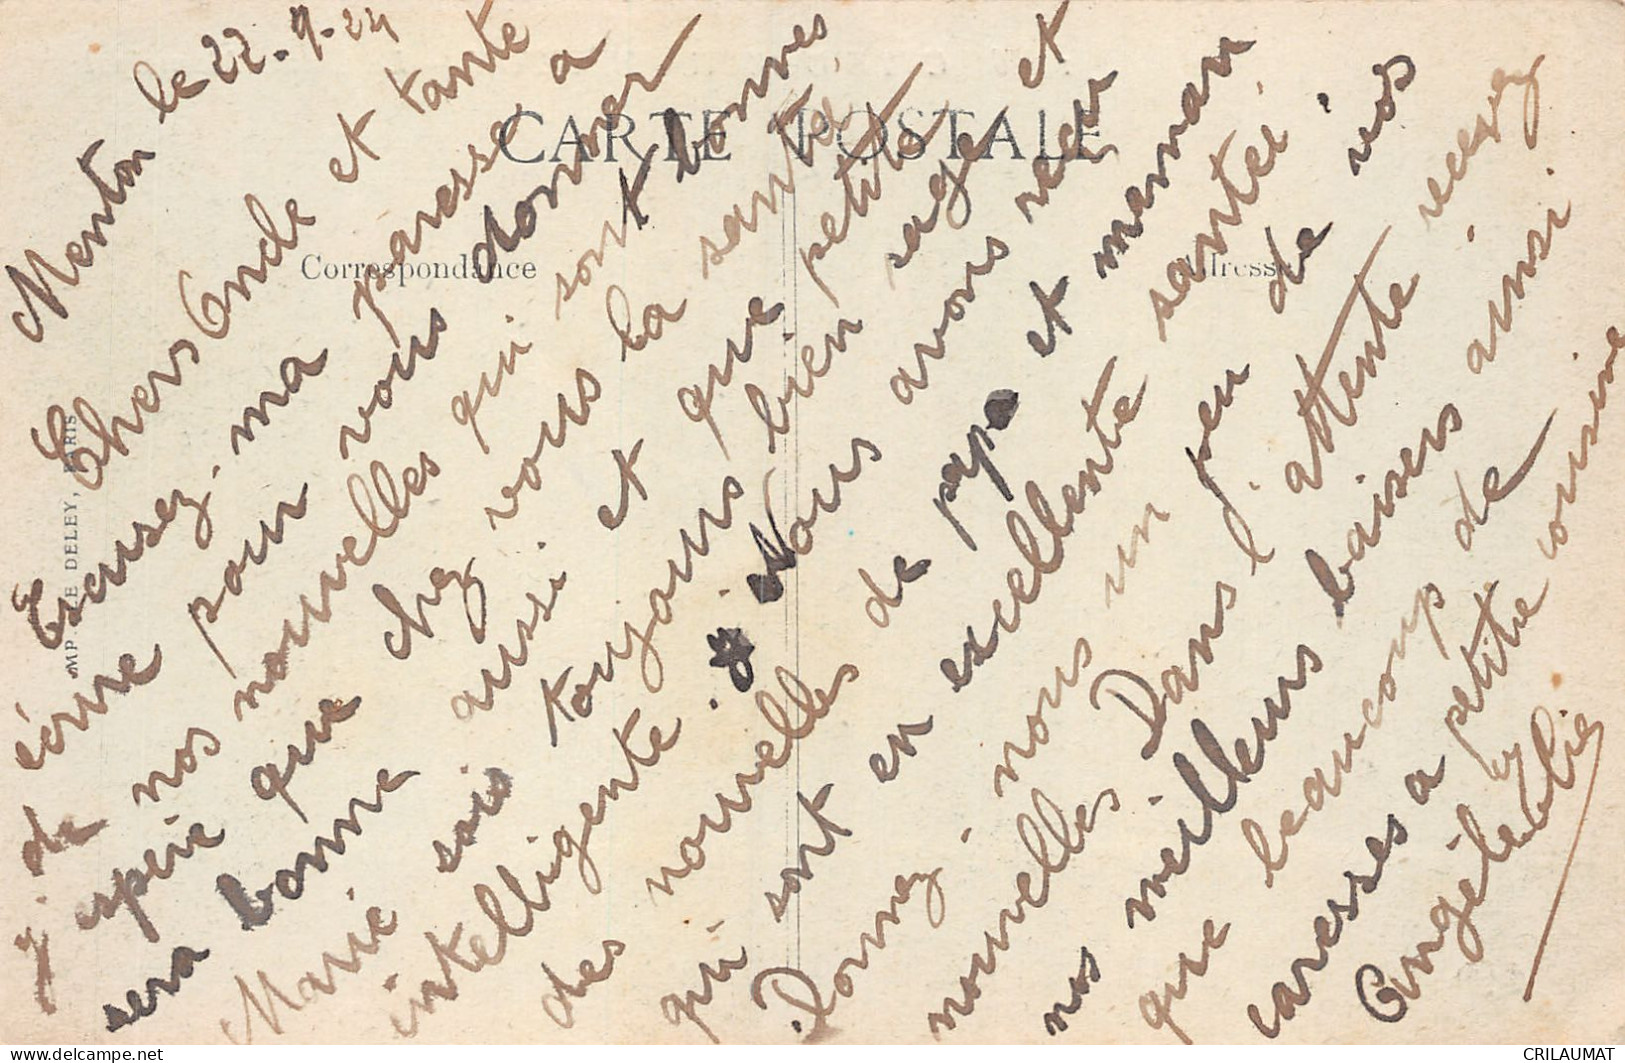 CARTE POSTALE
Correspondance
Adresse
IMP. DELEY, PARIS
Menton le 22-9-24
Chers Oncle et tante
Excusez-ma paresse a
écrire pour vous donner
de nos nouvelles qui sont bonnes
j'espère que chez vous la santé
sera bonne aussi et que petite
Marie sois toujours bien sage et
intelligente. Nous avons reçu
des nouvelles de papa et maman
qui sont en excellente santée.
Donnez-nous un peu de vos
nouvelles Dans l'attente recevez
nos meilleurs baisers ainsi
que beaucoup de
caresses a petite cousine
Angèle
CRILAUMAT